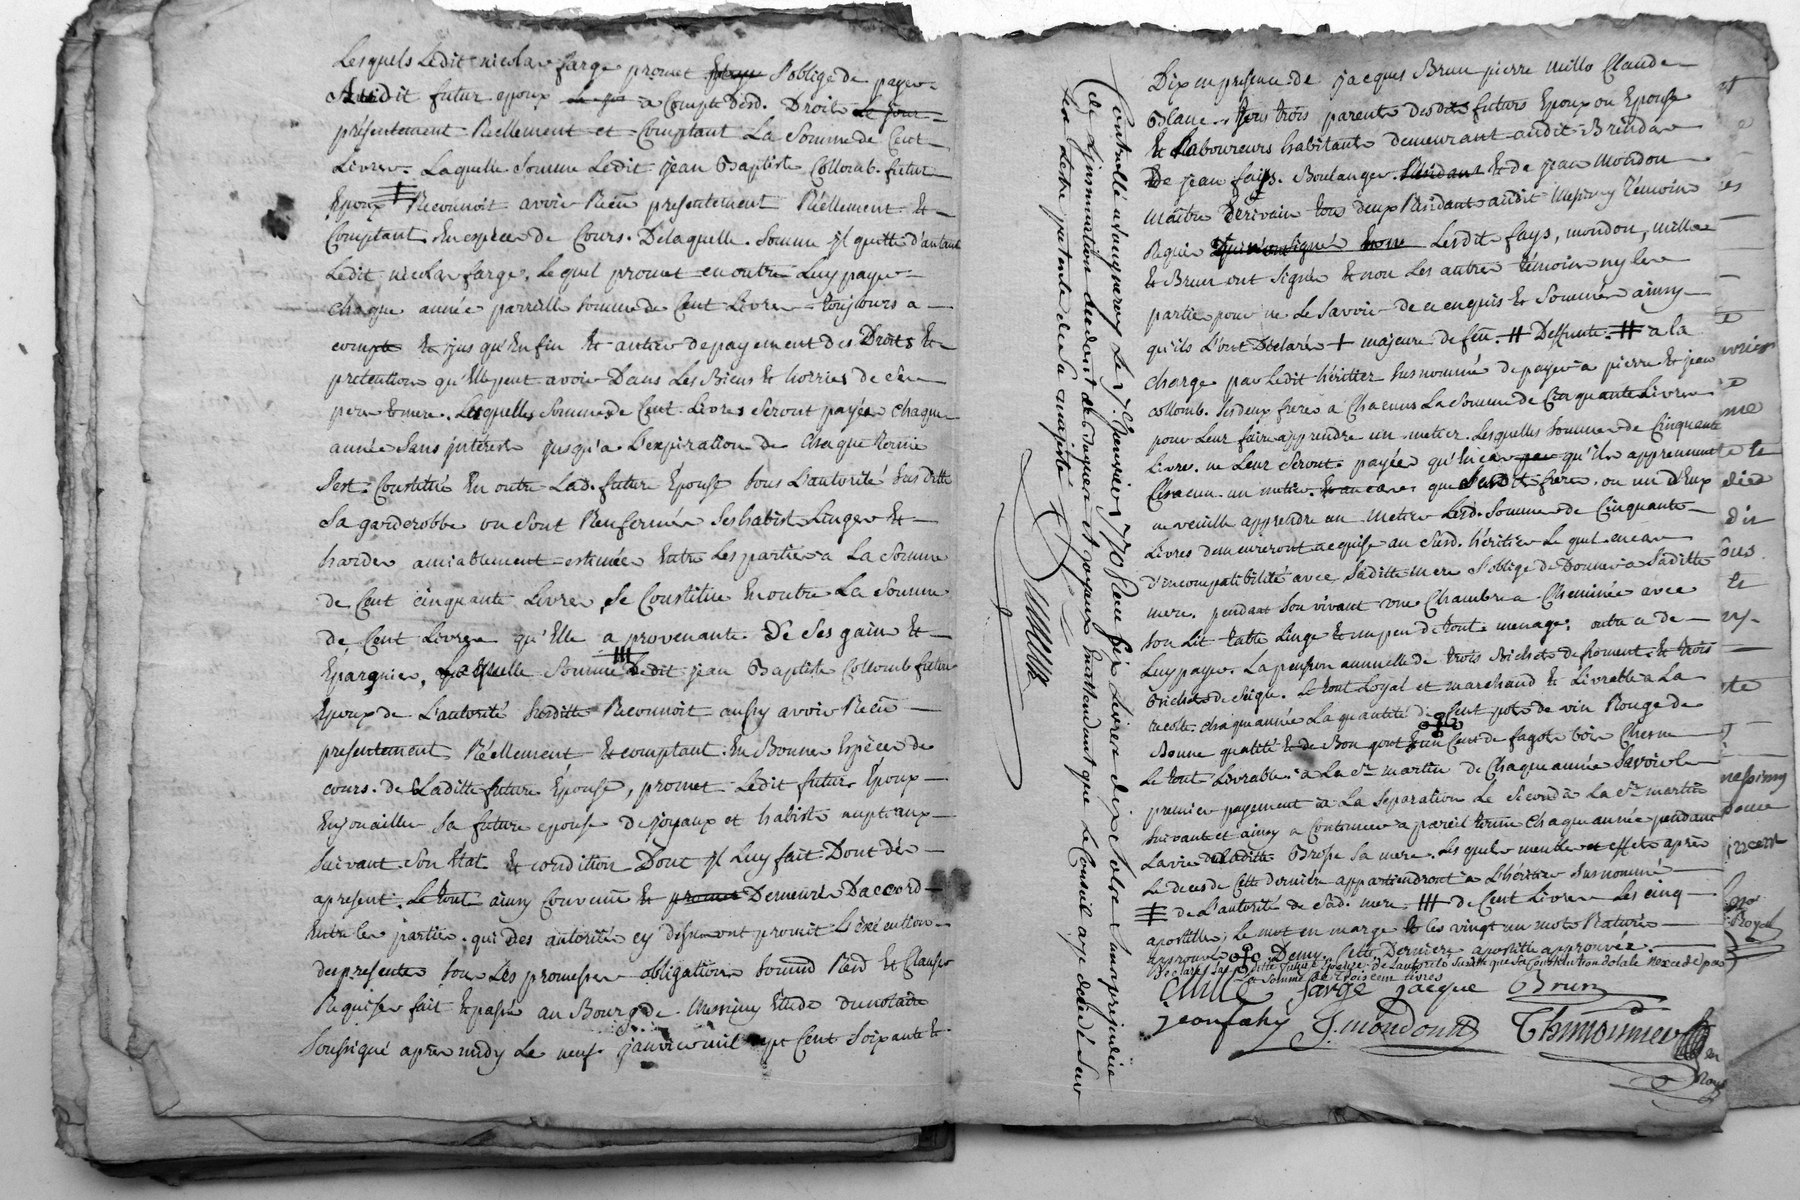 Lesquels Ledit nicolas farge promet S'oblige de payer
Audit futur epoux a Compte Desd. Droits
présentement Réellement et Comptant La Somme de Cent
Livres. Laquelle Somme Ledit jean Baptiste Collomb. futur
Epoux Reconnoit avoir Reçu presentement Réellement Et
Comptant En espèces de Cours. De laquelle Somme jl quitte d'autant
Ledit nicolas farge. Lequel promet en outre Luy payer
chaque année parreille Somme de Cent Livres toujours a
compte Et jusqu'Enfin Et antier depayement des Droits Et
pretentions qu'Elle peut avoir Dans Les Biens Et hoiries de Ses
pere Et mere. Lesquelles Sommes de Cent Livres Seront payées chaque
année Sans jnterest jusqu'a L'expiration de Chaque terme
S'est Constitué En outre Lad. future Epouse Sous L'autorité Susditte
Sa garderobbe ou Sont Renfermés Ses habist Linges Et
hardes amiablement estimées Entre Les parties a La Somme
de Cent cinquante Livres, Se Constitue En outre La Somme
de Cent Livres qu'Elle a provenante De Ses gain Et
Epargnies, Laquelle Somme Ledit jean Baptiste Collomb futur
Epoux de L'autorité Susditte Reconnoit aussy avoir Reçu
presentement Réellement Et comptant En Bonnes Espèces de
cours. de Laditte future Epouse, promet Ledit futur Epoux
Enjouailler Sa future epouse de joyaux et habist nuptiaux
Suivant Son Etat Et condition Dont jl Luy fait Dont dés
apresent. Le tout ainsy Convenu Et promis Demeuré D'accord
Entre les parties. qui Des autorités cy dessus ont promit L'exécution
des presentes Sous Les promesses obligations Soumis Rend Et Clauses
Requises fait Et passé au Bourg de Messimy Etude du notaire
Soussigné apres midy Le neuf janvier mil sept Cent Soixante Et
Controllé a vaugneray Le 17e janvier 1770 Reçu Six Livres dix Sols Sans prejudice
de Linsinuation du dont de joyaux Et attendant que Le Conseil aye décidé Sur
Les Lettre patente de Sa majesté
Dix en presence de jacques Brun pierre millo Claude
Blanc. Tous trois parents desdits futurs Epoux ou Epouse
Et Laboureurs habitants demeurant audit Brindas
De jean fays. Boulanger. Et de jean mondon
maître Ecrivain tous deux Residants audit Messimy témoins
Requis Lesdit fays, mondon, millo
Et Brun ont Signé Et non Les autres témoins ny les
parties pour ne Le Savoir de ce enquis Et Sommés ainsy
qu'ils L'ont Déclaré + majeure de feu. ++ Deffunte. ++ a la
charge par Ledit héritier Susnommé de payer a pierre Et jean
collomb. Ses deux freres a Chacuns La Somme de Cinquante Livres
pour Leur faire apprendre un metier. Lesquelles Sommes de Cinquante
Livres. ne Leur Seront payées qu'En cas qu'ils apprennent
Chacun un metier. que Sesdits freres ou un d'Eux
ne veuille apprendre un metier Lesd. Sommes de Cinquante
Livres demeureront acquise au Susd. héritier Lequel en cas
D'incompatibilité avec Saditte mere S'oblige de Donner a Saditte
mere. pendant Son vivant une Chambre a Cheminée avec
Son Lit table Linge Et un peu de tout menage: outre ce de
Luy payer La pension annuelle de trois Bichets de froment Et trois
Bichets de Seigle. Le tout Loyal et marchand Et Livrable a La
recolte chaque année La quantité de Cent pots de vin Rouge de
Bonne qualité Et de Bon gout Et un Cent de fagots bois Chesne
Le tout Livrable. a La St. martin de Chaque année Savoir le
premier payement a La Separation Le Second a La St. martin
Suivant et ainsy a Continuer a pareil terme chaque année pendant
La vie de Laditte Brosse Sa mere. Lesquels meubles et effets après
Le deces de Cette derniere appartiendront a L'héritier Susnommé
de L'autorité de Sad. mere. +++ de Cent Livres Les cinq
apostilles; Le mot en marge Et les vingt un mots Raturés
approuvés Demy Cette Derniere apostille approuvée.
Declare La ditte future Epouse De L'autorité Susditte que Sa Constitution dotale n'excede pas
La Somme de trois cent livres
Millo farge jacque Brun
jean fahy J. mondon Thimonnier